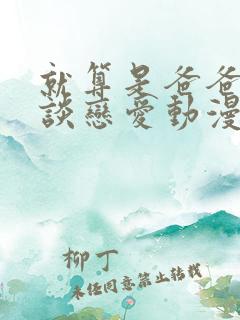 就算是爸爸
談戀愛動漫
柳丁
未經同意禁止轉載